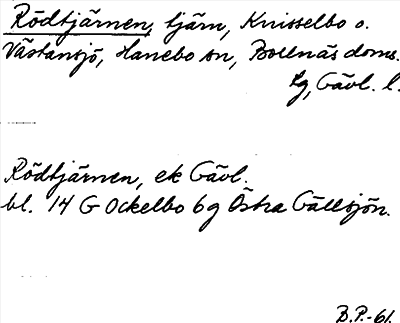 Rödtjärnen, tjärn, Knisselbo o.
Västansjö, Hanebo sn, Bollnäs doms.
tg, Gävl. l.
Rödtjärnen, ek Gävl.
bl. 14 G Ockelbo 6g Östra Gällsjön.
B.P.-61.